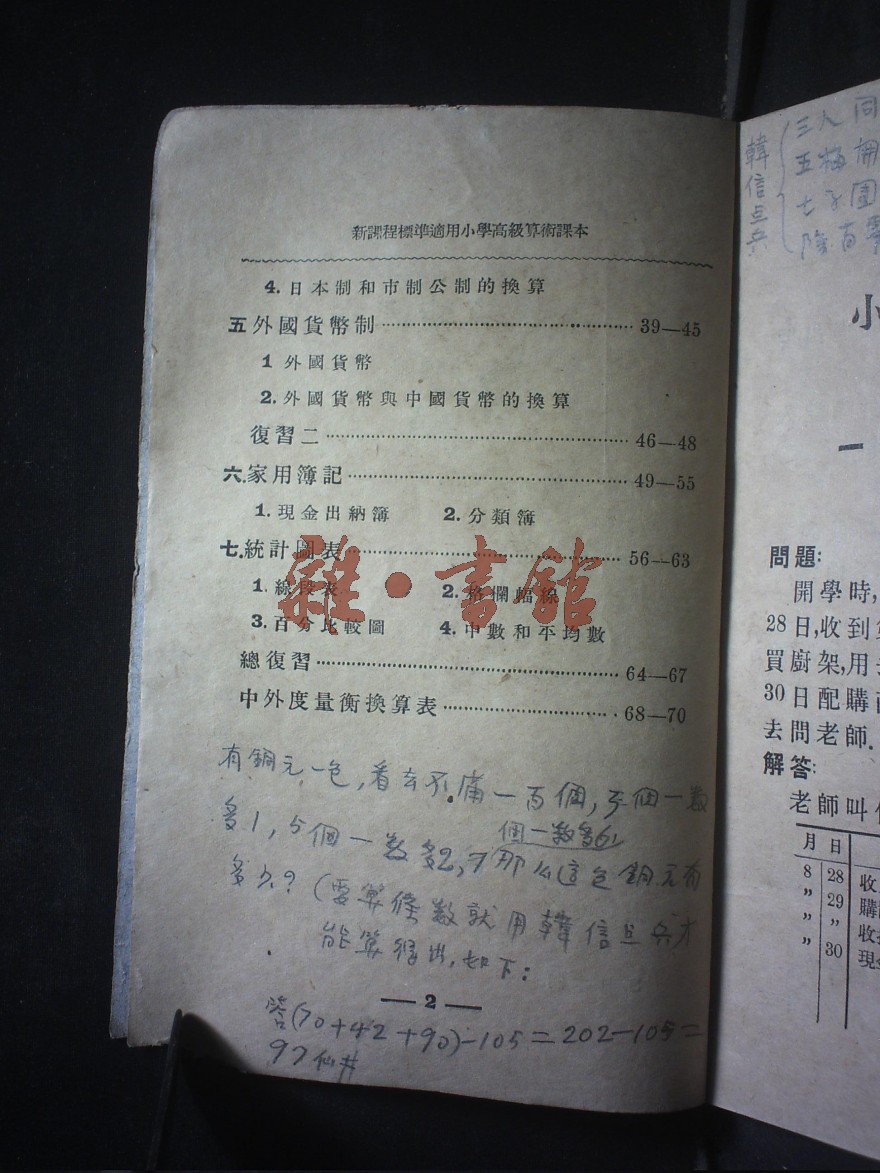 新課程標準適用小學高級算術課本
4.日本制和市制公制的換算
五外國貨幣制 39—45
1 外國貨幣
2.外國貨幣與中國貨幣的換算
復習二 46—48
六.家用簿記 49—55
1.現金出納簿 2.分類簿
七.統計圖表 56—63
1.線段表 2.
3.百分比較圖 4.中數和平均數
總復習 64—67
中外度量衡換算表 68—70
雜·書館
有銅元一包,看去不滿一百個,3個一數
多1,5個一数多2,7個一数多6,那么這包銅元有
多少?(要算條数就用韓信点兵才
能算得出,如下:
—2—
答(70+42+90)-105=202-105=
97仙#
韓信点兵
三人同
五梅
七子團
除百零
小
一
問題:
開學時,
28日,收到
買廚架,用
30日配購
去問老師.
解答:
老師叫
月 日
8 28 收
〃 29 購
〃 〃 收
〃 30 現金